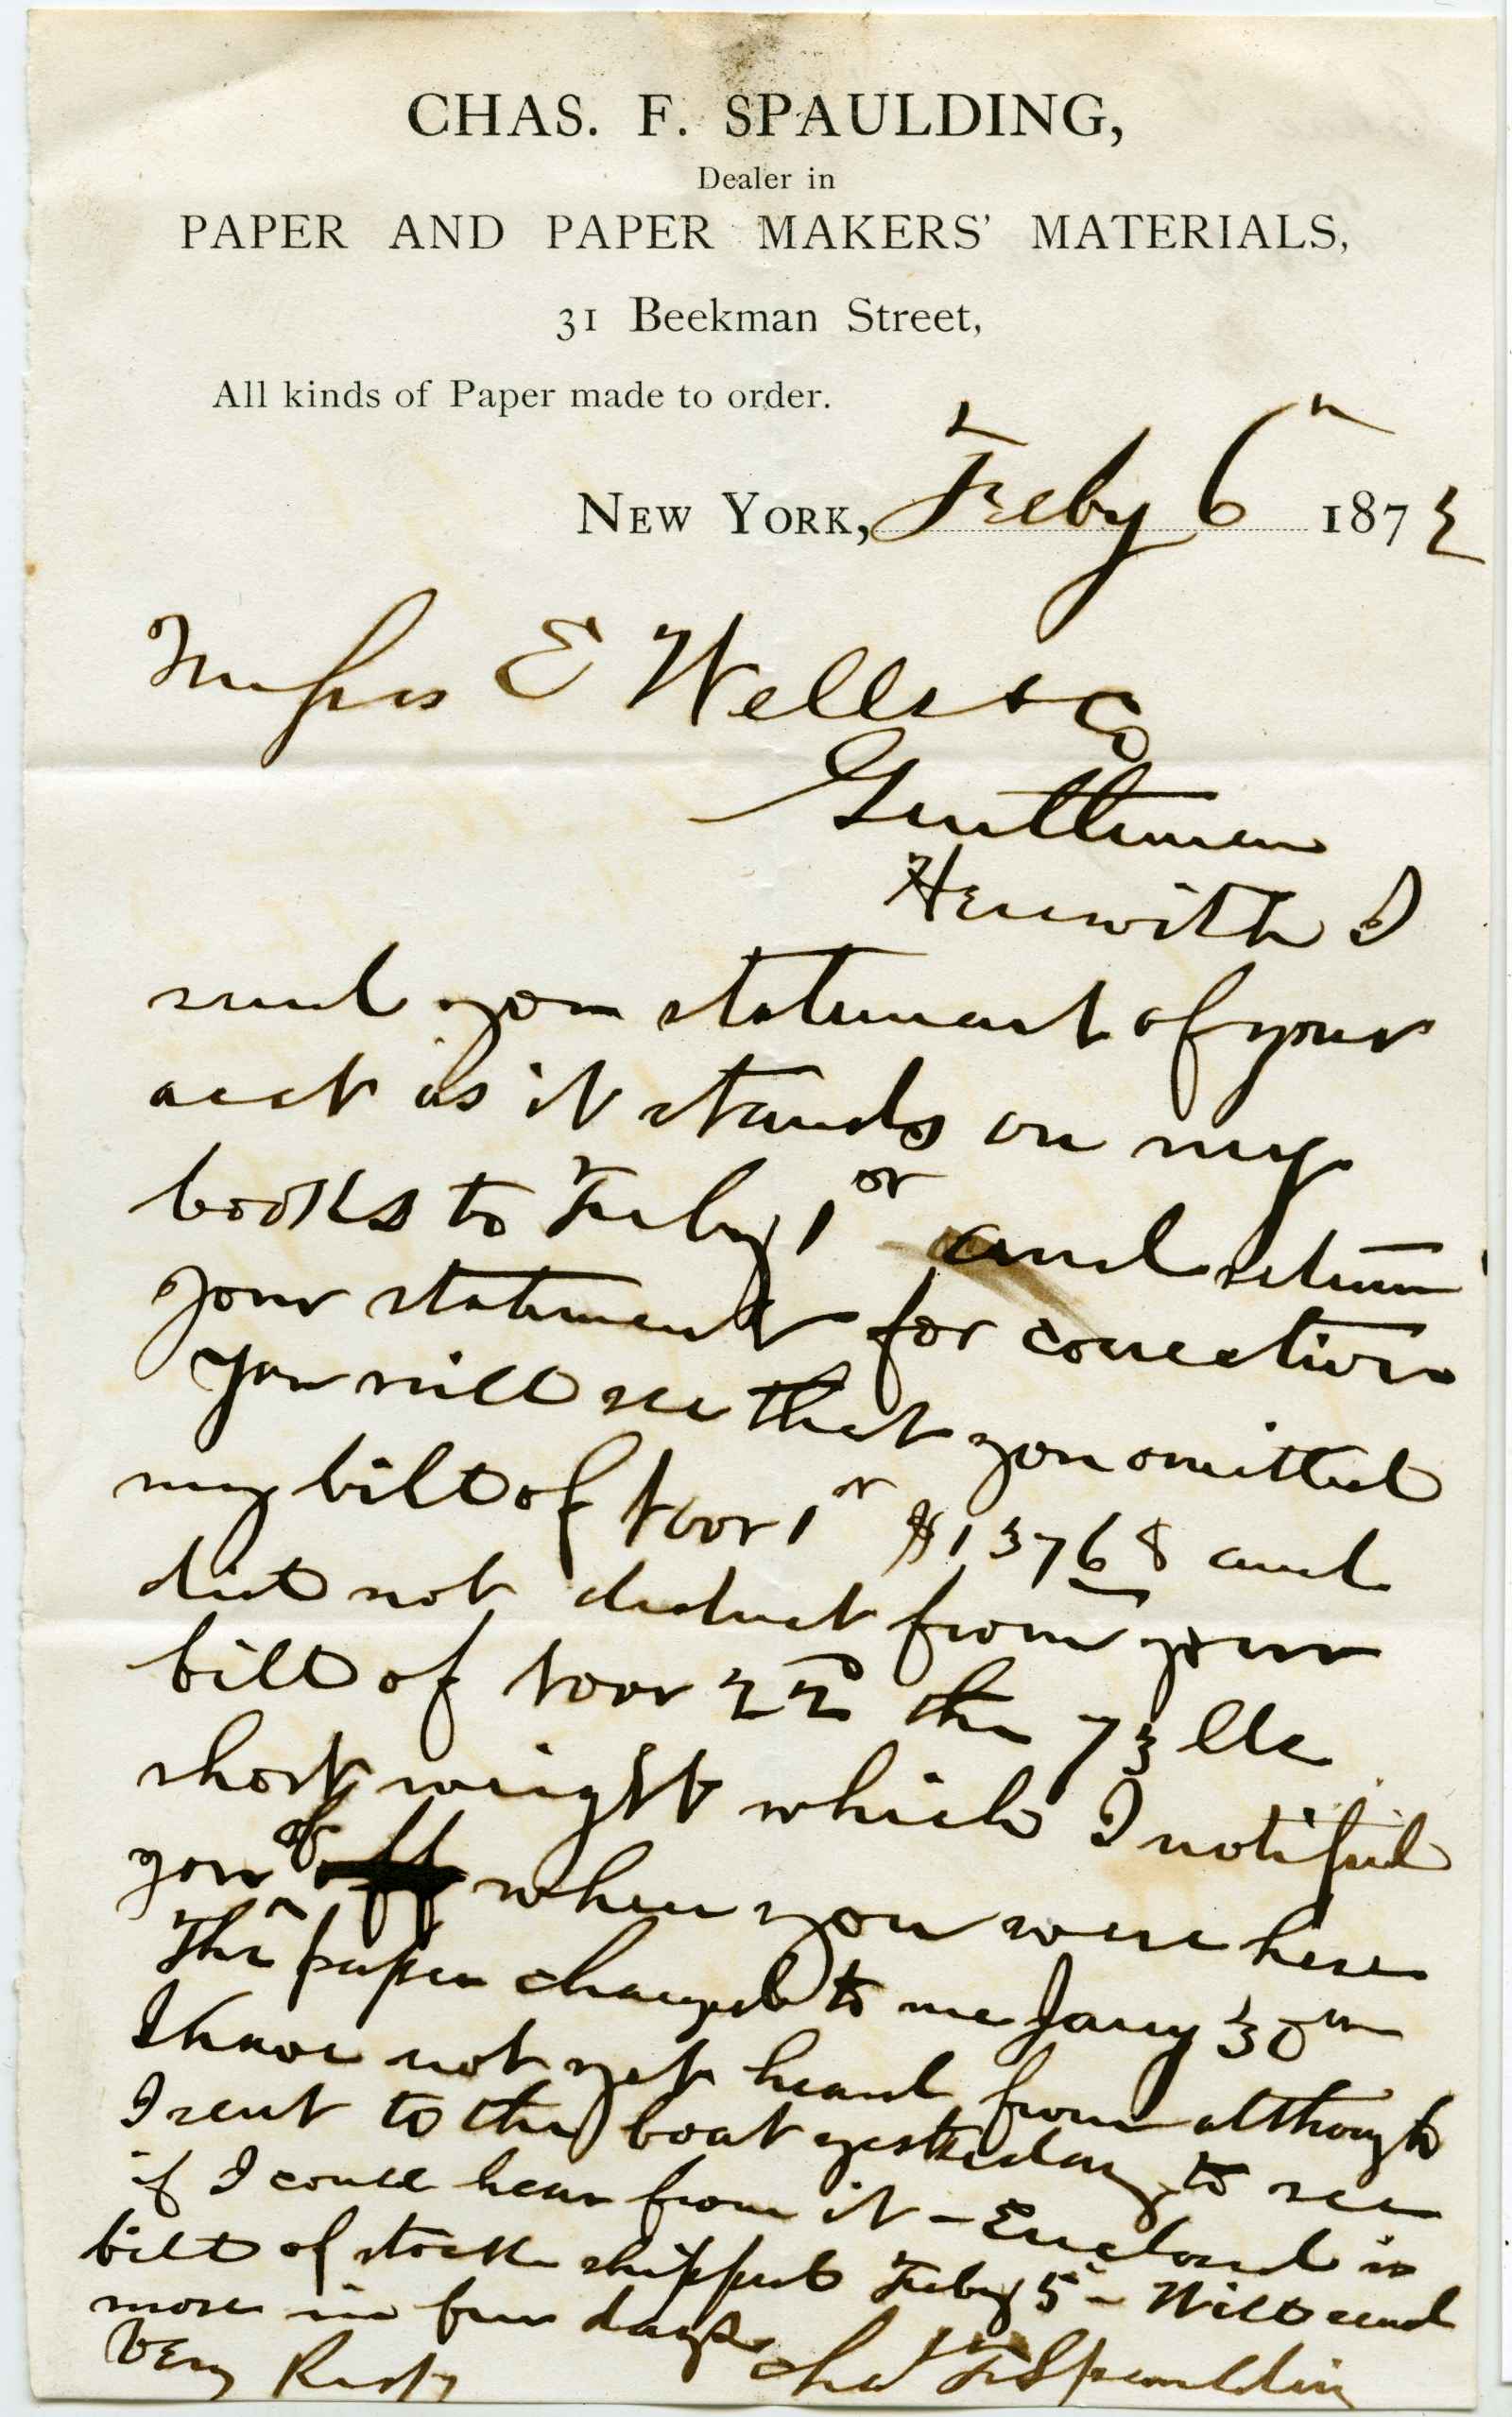 CHAS. F. SPAULDING,
Dealer in
PAPER AND PAPER MAKERS' MATERIALS,
31 Beekman Street,
All kinds of Paper made to order.
NEW YORK, Feby 6th 1873
Messrs E Wells & Co
Gentlemen
Herewith I
send you statement of your
acct as it stands on my
books to Feby 1st and return
your statement for correction
You will see that you omitted
my bill of Novr 1st $137 68 and
did not deduct from your
bill of Novr 22d the 73 lbs
short weight which I notified
you of when you were here
The paper charged to me Jany 30th
I have not yet heard from although
I sent to the boat yesterday to see
if I could hear from it - Enclosed is
bill of stock shipped Feby 5th - Will send
more in few days
Very Respy Chas F Spaulding